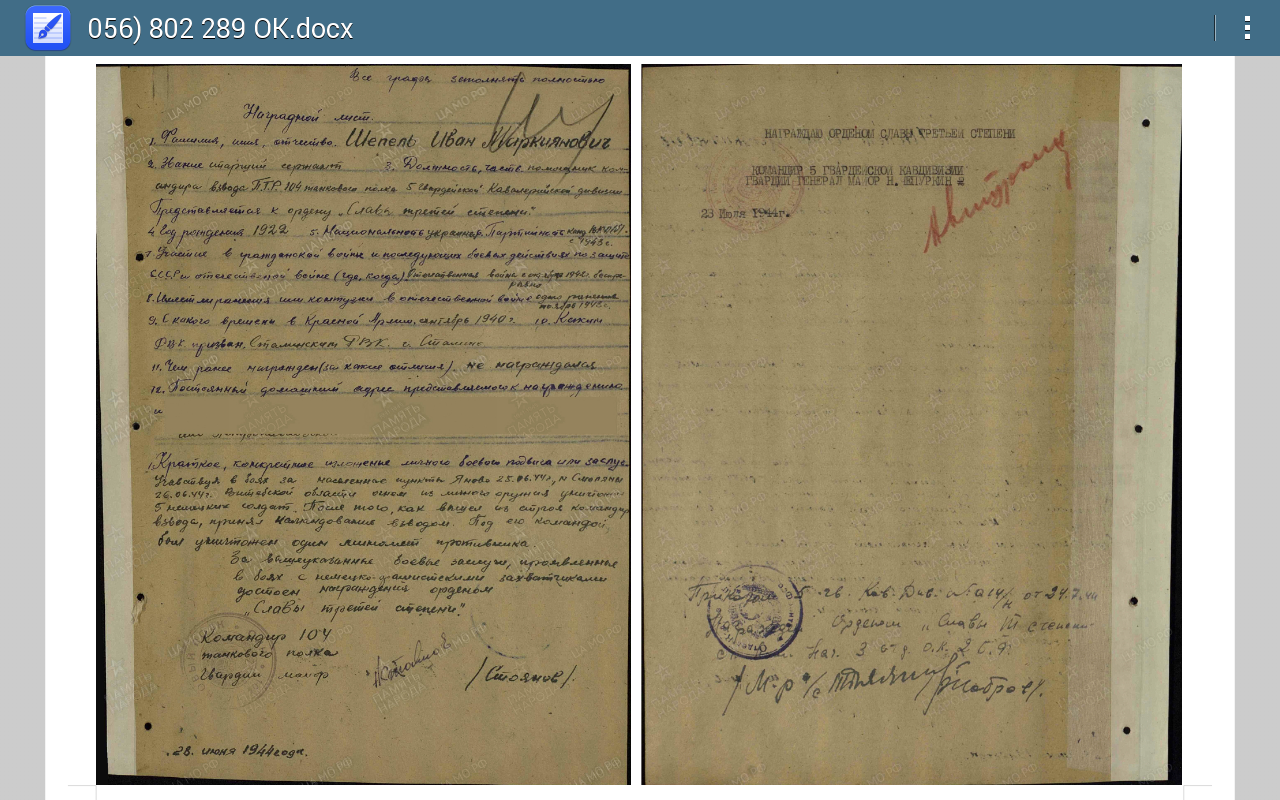 056) 802 289 OK.docx
Все графы заполнять полностью
Наградной лист.
1. Фамилия, имя, отчество. Шепель Иван Маркиянович
2. Звание старший сержант 3. Должность, часть помощник ком-
андира взвода ПТР. 104 танкового полка 5 Гвардейской Кавалерийской дивизии
Представляется к ордену „Слава третей степени."
4. Год рождения 1922 5. Национальность украинец. Партийность канд. ВКП(б)
с 1943 г.
7. Участие в гражданской войне и последующих боевых действиях по защите
СССР и отечественной войне (где, когда). Отечественная война с октября
8. Имеет ли ранения или контузии в отечественной войне одно ранение
ноябрь 1943 г.
9. С какого времени в Красной Армии. сентябрь 1940 г. 10. Каким
РВК призван. Сталинскам РВК. г. Сталино
11. Чем ранее награжден (за какие отличия). не награждался
12. Постоянный домашний адрес представляемого к награждению
и
1. Краткое, конкретное изложение личного боевого подвига или заслуг.
Учавствуя в боях за населенные пункты Яново 25.06.44г., м Смоляны
26.06.44г. Витебской области огнем из личного оружия уничтожил
5 немецких солдат. После того, как вышел из строя командир
взвода, принял командование взводом. Под его командой,
был уничтожен один миномет противника.
За вышеуказанные боевые заслуги, проявленные
в боях с немецко-фашистскими захватчиками
достоен награждения орденом
„Славы третей степени."
Командир 104
танкового полка
Гвардии майор /Стоянов/.
28. июня 1944 года.
НАГРАЖДАЮ ОРДЕНОМ СЛАВЫ ТРЕТЬЕЙ СТЕПЕНИ
КОМАНДИР 5 ГВАРДЕЙСКОЙ КАВДИВИЗИИ
ГВАРДИИ ГЕНЕРАЛ МАЙОР Н. ЧЕПУРКИН
23 Июля 1944г.
Приказом 5 гв. Кав. Див. № 014/н от 24.7.44
Орденом „Славы III степени
Нач. 3 отд. О.К. 2 Б.Ф.
М-р а/с
ЦА МО РФ
ПАМЯТЬ НАРОДА